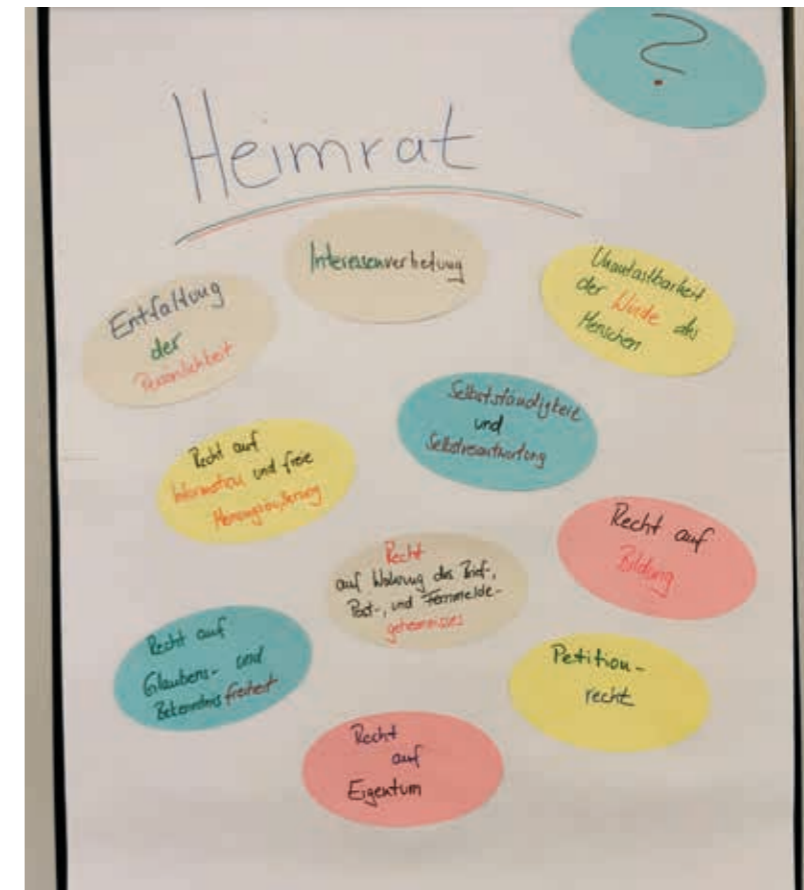 ?
Heimrat
Interessenvertretung
Entfaltung
der
Persönlichkeit
Unantastbarkeit
der Würde des
Menschen
Selbstständigkeit
und
Selbstverantwortung
Recht auf
Information und freie
Meinungsäußerung
Recht auf
Bildung
Recht
auf Wahrung des Brief-,
Post-, und Fernmelde-
geheimnisses
Recht auf
Glaubens- und
Bekenntnisfreiheit
Petition-
recht
Recht
auf
Eigentum